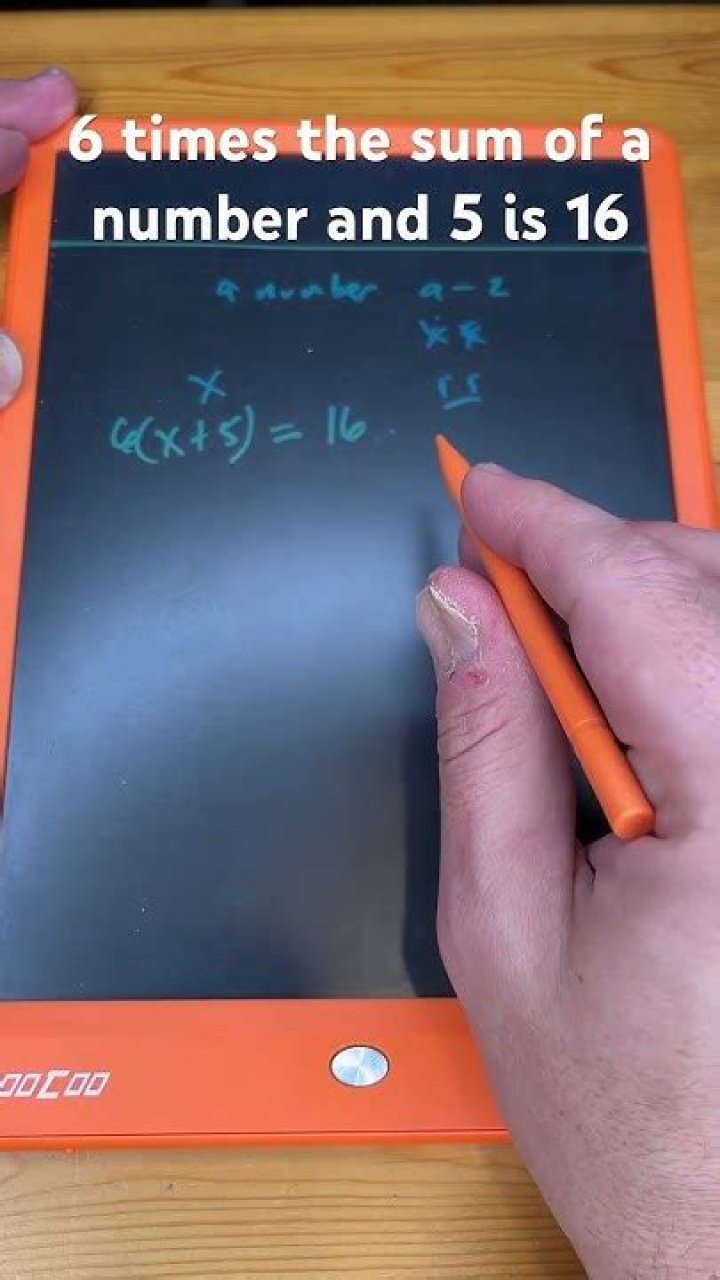 6 times the sum of a
number and 5 is 16
a number a-z
x
6(x+5) = 16